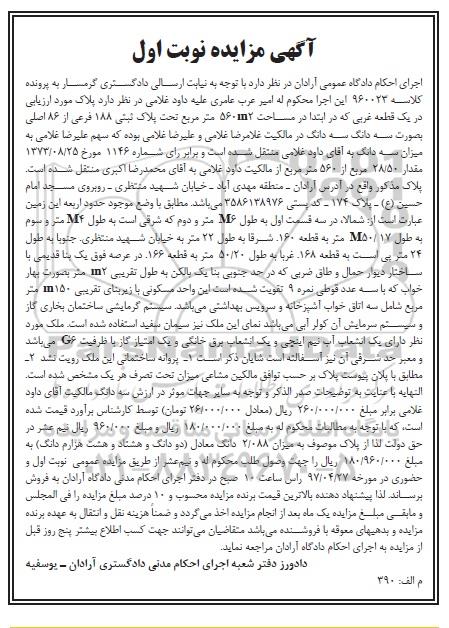 آگهی مزایده نوبت اول
اجرای احکام دادگاه عمومی آرادان در نظر دارد با توجه به نیابت ارسالی دادگستری گرمسار به پرونده
کلاسه ۹۶۰۰۲۳ این اجرا محکوم له امیر عرب عامری علیه داود غلامی در نظر دارد پلاک مورد ارزیابی
در یک قطعه غربی که در ابتدا در مساحت ۵۶۰m۲ متر مربع تحت پلاک ثبتی ۱۸۸ فرعی از ۸۶ اصلی
بصورت سه دانگ سه دانگ در مالکیت غلامرضا غلامی و علیرضا غلامی بوده که سهم علیرضا غلامی به
میزان سه دانگ به آقای داود غلامی منتقل شده است و برابر رای شماره ۱۱۴۶ مورخ ۱۳۷۳/۰۸/۲۵
مقدار ۲۸/۵۰ مربع از ۵۶۰ متر مربع از مالکیت داود غلامی به آقای محمدرضا اکبری منتقل شده است.
پلاک مذکور واقع در آدرس آرادان ـ منطقه مهدی آباد ـ خیابان شهید منتظری ـ روبروی مسجد امام
حسین (ع) ـ پلاک ۱۷۴ ـ کد پستی ۳۵۸۶۱۳۸۹۷۶ می‌باشد. مطابق با وضع موجود حدود اربعه این زمین
عبارت است از: شمالا، در سه قسمت اول به طول M۶ متر و دوم که شرقی است به طول M۴ متر و سوم
به طول ۱۷/۵۰M متر به قطعه ۱۶۰. شرقا به طول ۲۲ متر به خیابان شهید منتظری. جنوبا به طول
۲۴ متر پی است به قطعه ۱۶۸. غربا به طول ۵۰/۲۰ متر به قطعه ۱۶۶. در عرصه فوق یک بنا قدیمی با
ساختار دیوار حمال و طاق ضربی که در حد جنوبی بنا یک بالکن به طول تقریبی m۲ متر بصورت بهار
خواب که با سه عدد قوطی نمره ۹ تقویت شده است این واحد مسکونی با زیربنای تقریبی m۱۵۰ متر
مربع شامل سه اتاق خواب آشپزخانه و سرویس بهداشتی می‌باشد. سیستم گرمایشی ساختمان بخاری گاز
و سیستم سرمایش آن کولر آبی می‌باشد نمای این ملک نیز سیمان سفید استفاده شده است. ملک مورد
نظر دارای یک انشعاب آب نیم اینچی و یک انشعاب برق خانگی و یک امتیاز گاز با ظرفیت G۶ می‌باشد
و معبر حد شرقی آن نیز آسفالته است شایان ذکر است ۱ـ پروانه ساختمانی این ملک رویت نشد ۲ـ
مطابق با پلان پیوست پلاک بر حسب توافق مالکین مشاعی میزان تحت تصرف هر یک مشخص شده است.
النهایه با عنایت به توضیحات صدر الذکر و توجه به سایر جهات موثر در ارزش سه دانگ مالکیت آقای داود
غلامی برابر مبلغ ۲۶۰/۰۰۰/۰۰۰ ریال (معادل ۲۶/۰۰۰/۰۰۰ تومان) توسط کارشناس برآورد قیمت شده
است، که با توجه به مطالبات محکوم له به مبلغ ۱۸۰/۰۰۰/۰۰۰ ریال و مبلغ ۹۶۰/۰۰۰ ریال نیم عشر در
حق دولت لذا از پلاک موصوف به میزان ۲/۰۸۸ دانگ معادل (دو دانگ و هشتاد و هشت هزارم دانگ) به
مبلغ ۱۸۰/۹۶۰/۰۰۰ ریال را جهت وصول طلب محکوم له و نیم‌عشر از طریق مزایده عمومی نوبت اول و
حضوری در مورخه ۹۷/۰۴/۲۷ راس ساعت ۱۰ صبح در دفتر اجرای احکام مدنی دادگاه آرادان به فروش
برساند. لذا پیشنهاد دهنده بالاترین قیمت برنده مزایده محسوب و ۱۰ درصد مبلغ مزایده را فی المجلس
و مابقی مبلغ مزایده یک ماه بعد از انجام مزایده اخذ می‌گردد و ضمناً هزینه نقل و انتقال به عهده برنده
مزایده و بدهیهای معوقه با فروشنده می‌باشد متقاضیان می‌توانند جهت کسب اطلاع بیشتر پنج روز قبل
از مزایده به اجرای احکام دادگاه آرادان مراجعه نماید.
دادورز دفتر شعبه اجرای احکام مدنی دادگستری آرادان ـ یوسفیه
م الف: ۳۹۰